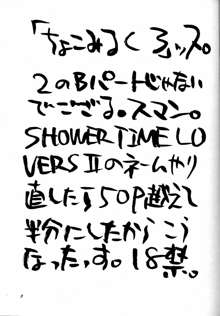 「ちょこみるくろップス。
2のBパートじゃない
でござる。スマン。
SHOWER TIME LO
VERS Ⅱのネームやり
直したら50P越えて
半分にしたからこう
なったっす。18禁。